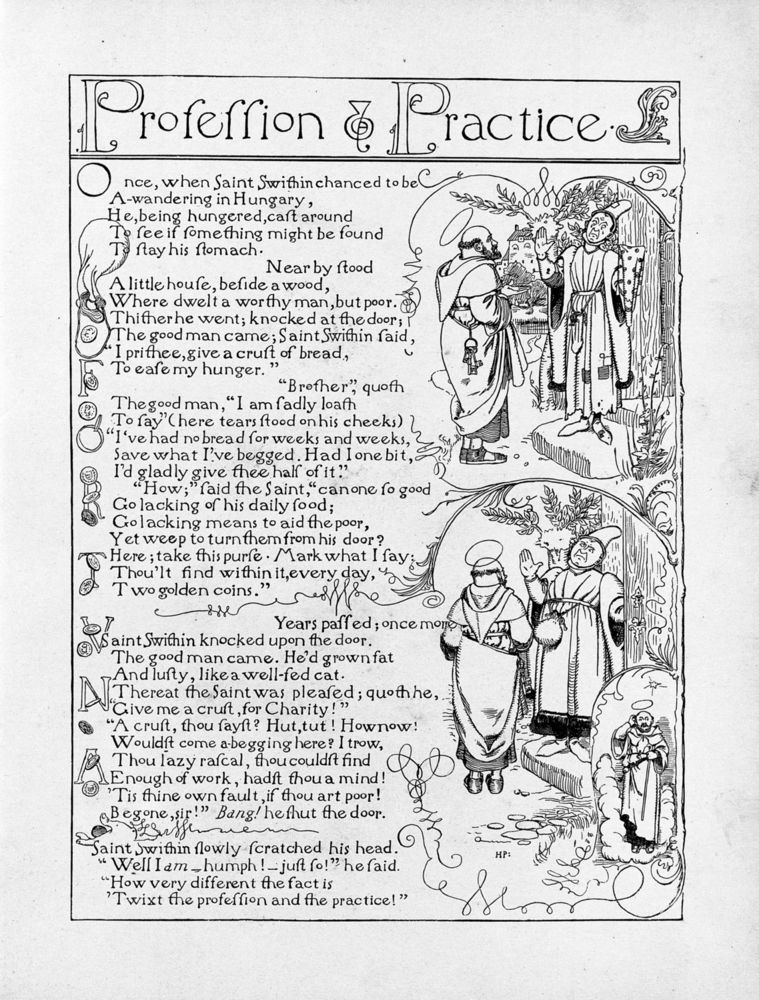 Profeſſion & Practice.
Once, when Saint Swithin chanced to be
A-wandering in Hungary,
He, being hungered, caſt around
To ſee if ſomething might be found
To ſtay his ſtomach.
Near by ſtood
A little houſe, beſide a wood,
Where dwelt a worthy man, but poor.
Thither he went; knocked at the door;
The good man came; Saint Swithin ſaid,
"I prithee, give a cruſt of bread,
To eaſe my hunger."
"Brother", quoth
The good man, "I am ſadly loath
To ſay" (here tears ſtood on his cheeks)
"I've had no bread for weeks and weeks,
Save what I've begged. Had I one bit,
I'd gladly give thee half of it."
"How;" ſaid the Saint, "can one ſo good
Go lacking of his daily food;
Go lacking means to aid the poor,
Yet weep to turn them from his door?
Here; take this purſe. Mark what I ſay:
Thou'lt find within it, every day,
Two golden coins."
Years paſſed; once more
Saint Swithin knocked upon the door.
The good man came. He'd grown fat
And luſty, like a well-fed cat.
Thereat the Saint was pleaſed; quoth he,
"Give me a cruſt, for Charity!"
"A cruſt, thou ſayſt? Hut, tut! How now!
Wouldſt come a-begging here? I trow,
Thou lazy raſcal, thou couldſt find
Enough of work, hadſt thou a mind!
'Tis thine own fault, if thou art poor!
Begone, sir!" Bang! he ſhut the door.
Saint Swithin ſlowly ſcratched his head.
"Well I am — humph! — juſt ſo!" he ſaid.
"How very different the fact is
'Twixt the profeſſion and the practice!"
FORTVNA
HP: